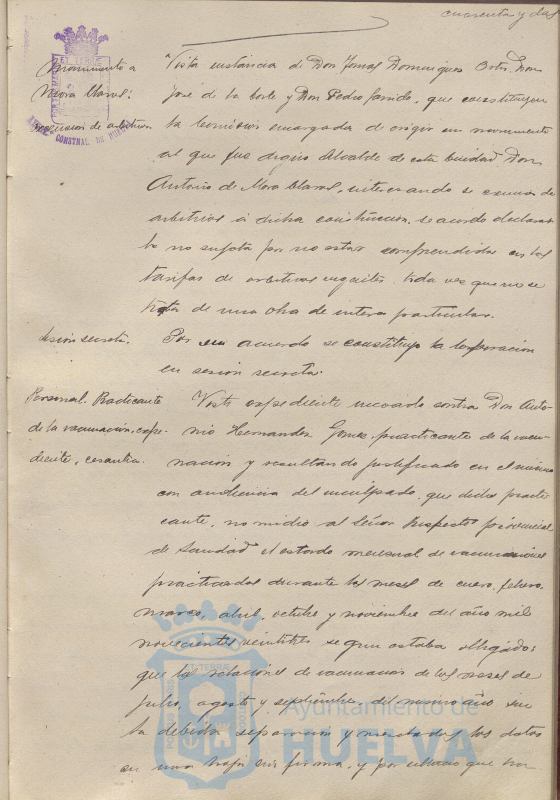 cuarenta y dos
Monumento a
Mora Claros:
exención de arbitrios
Vista instancia de Don Tomas Dominguez Ortiz, Don
José de la Corte y Don Pedro Garrido, que constituyen
la Comisión encargada de erigir un monumento
al que fue digno Alcalde de esta Ciudad Don
Antonio de Mora Claros, interesando se exima de
arbitrios a dicha construcción, se acordó declarar
la no sujeta por no estar comprendida en las
tarifas de arbitrios vigentes, toda vez que no se
trata de una obra de interes particular.
Sesión secreta.
Por su acuerdo se constituyó la Corporación
en sesión secreta.
Personal. Practicante
de la vacunación, expe-
diente, cesantia.
Visto expediente incoado contra Don Anto-
nio Hernandez Gomez, practicante de la vacu-
nación y resultando justificado en el mismo
con audiencia del inculpado, que dicho practi-
cante, no midio al Señor Inspector provincial
de Sanidad el estado mensual de vacunaciones
practicadas durante los meses de enero, febrero,
marzo, abril, octubre y noviembre del año mil
novecientos veintitres segun estaba obligado;
que las relaciones de vacunación de los meses de
julio, agosto y septiembre del mismo año sin
la debida separación y mezclados los datos
en una hoja sin firma, y por ultimo que no
ET TERRÆ
Ayuntamiento de
HUELVA